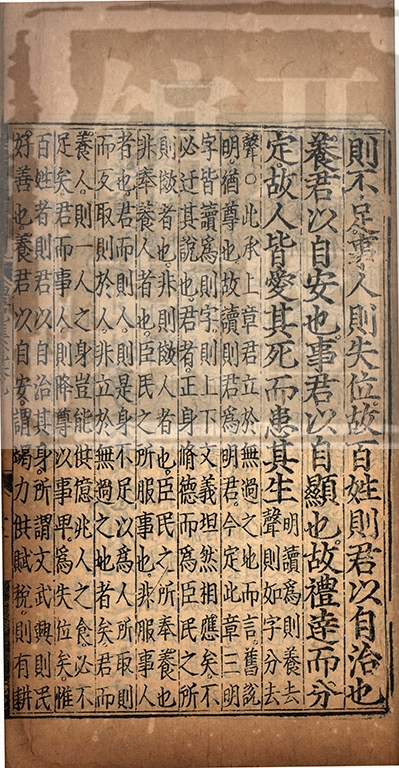 則不足事人則失位故百姓則君以自治也
養君以自安也事君以自顯也故禮逹而分
定故人皆愛其死而患其生
明讀為則養去
聲則如字分去
聲○此承上章君立於無過之地而言舊說
明猶尊也故讀則君為明君今定此章三明
字皆讀為則字則上下文義坦然相應矣不
必迂其說也君者正身脩德而為臣民之所
則傚者也非則傚人者也臣民之所奉養也
非奉養人者也臣民之所服事也非服事人
者也君而則人則是身不足以為人所取則
而反取則於人非立於無過之地者矣君而
養人則一人之身豈能供億兆人之食必不
足矣君而事人則降尊以事卑為失位矣惟
百姓者則君以自治其身所謂文武興則民
好善也養君以自安謂竭力供賦稅則有耕